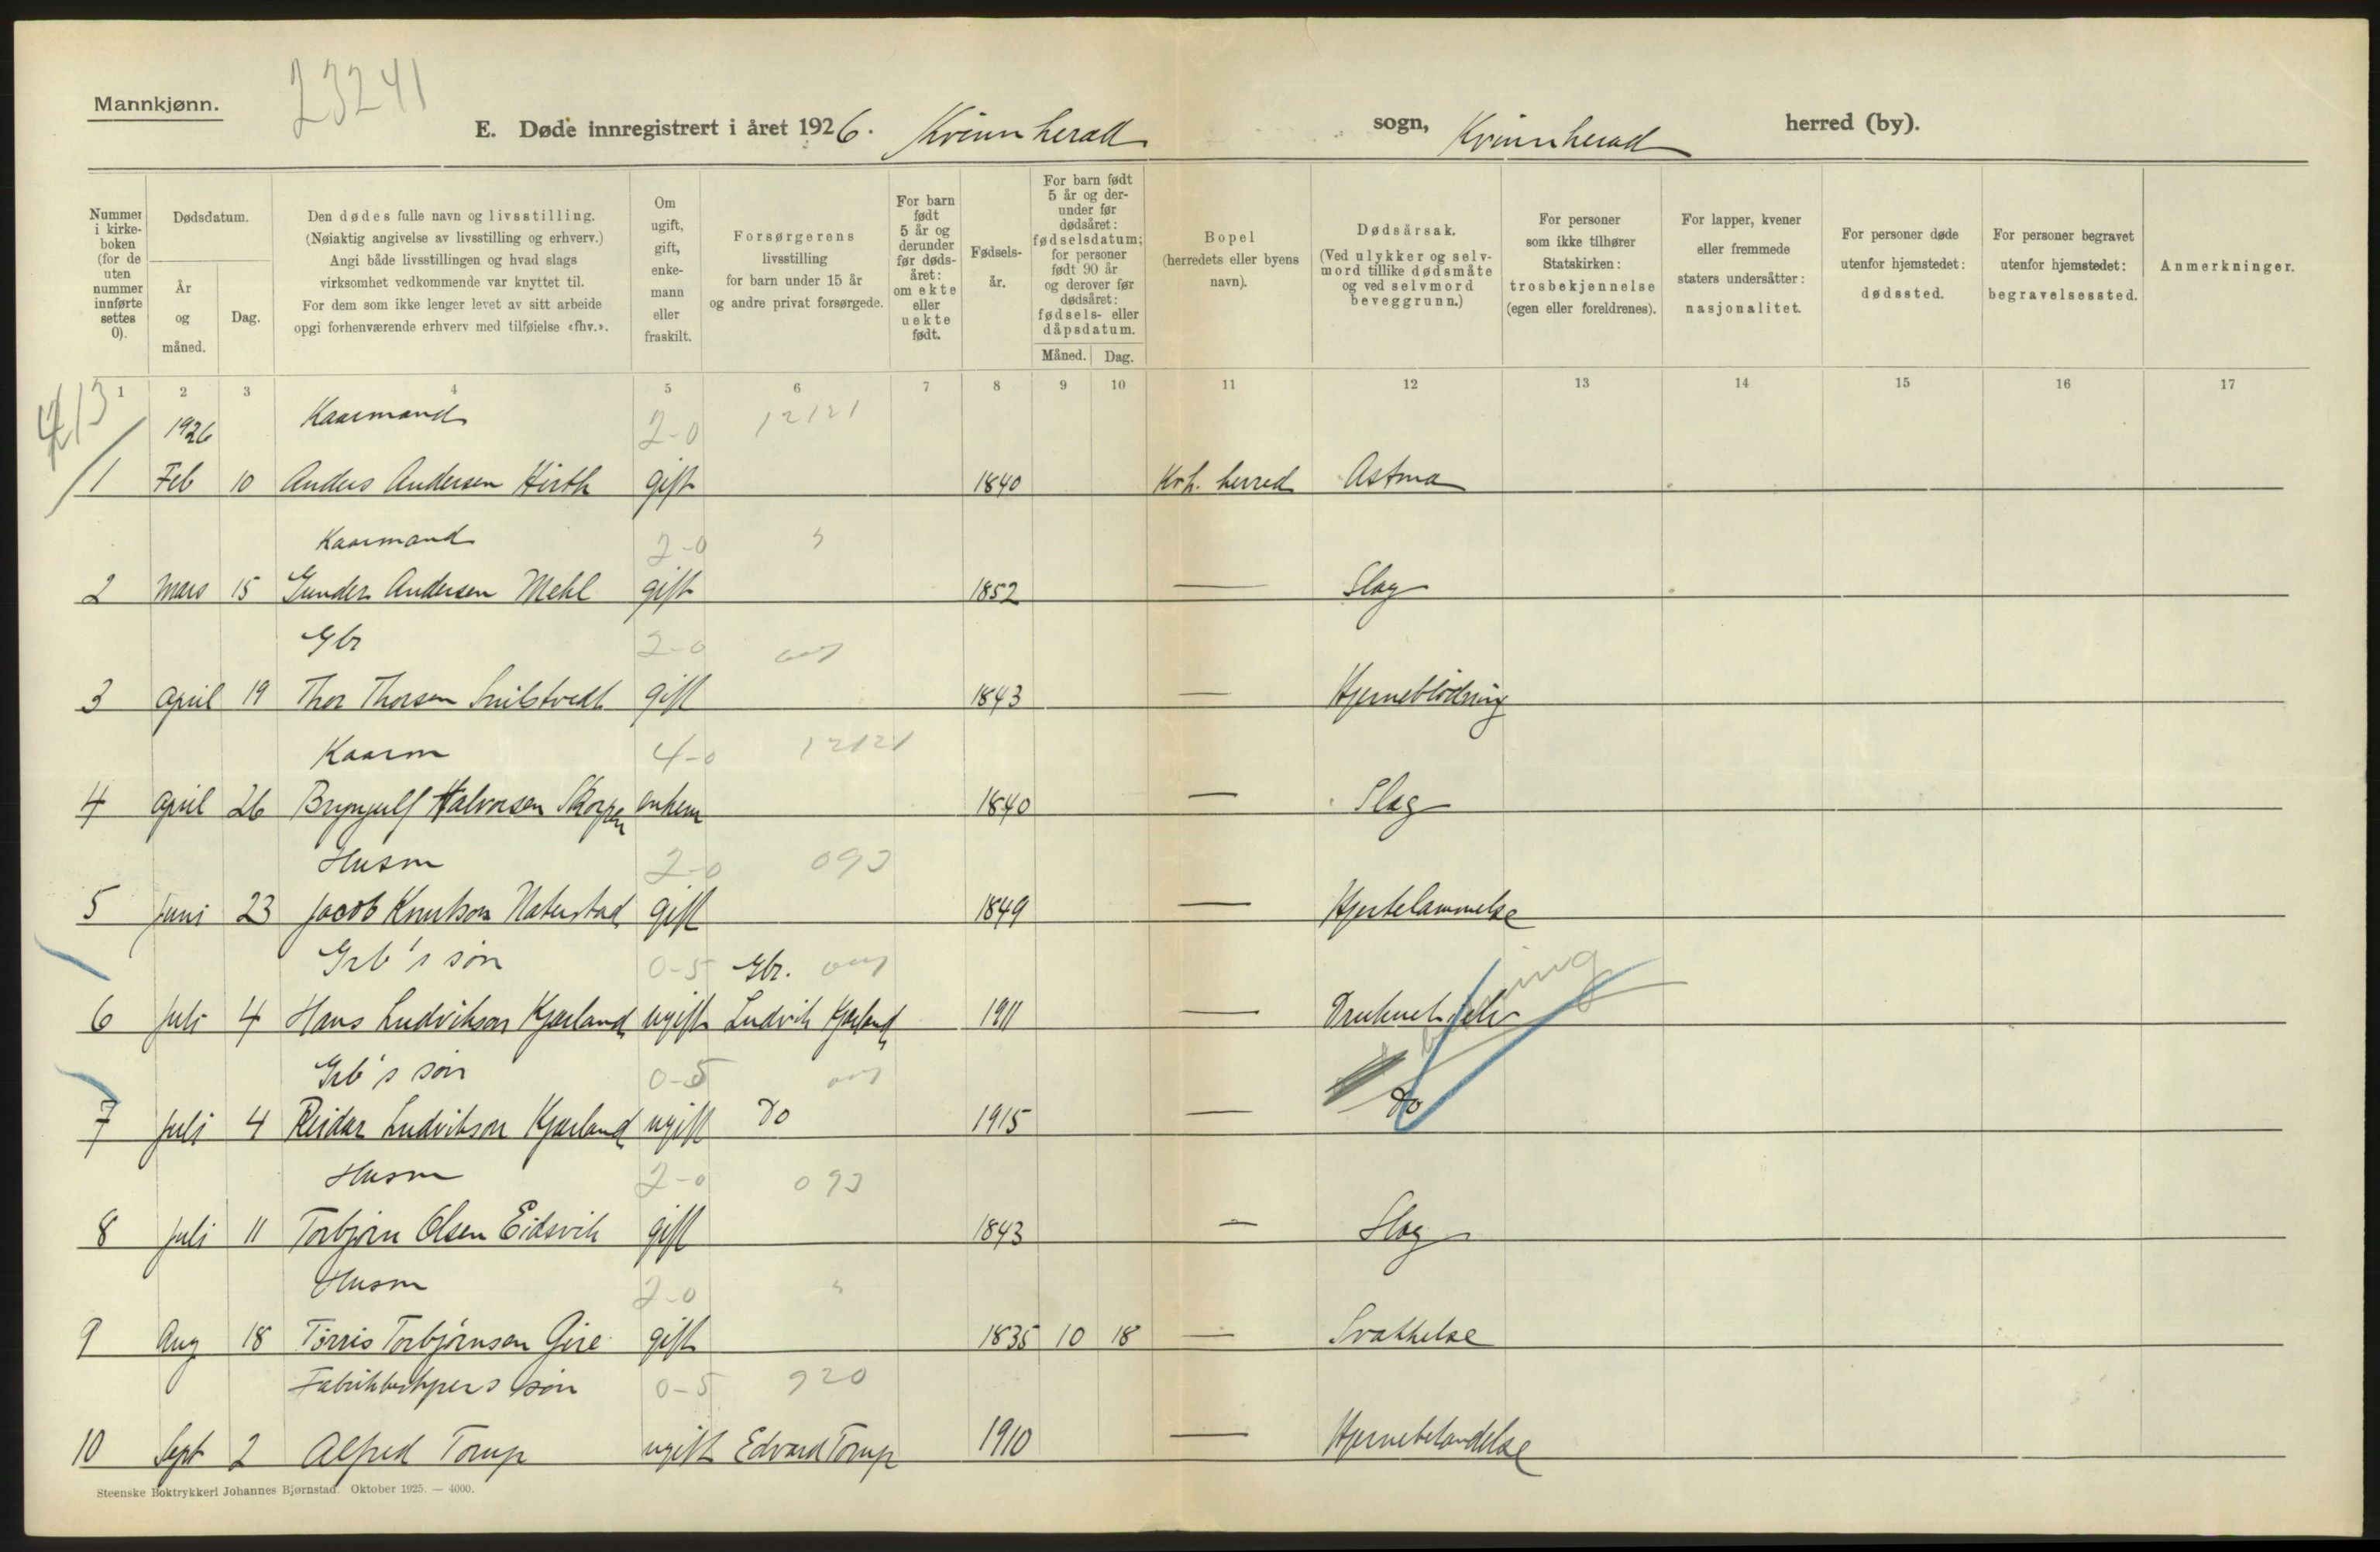 Mannkjønn.
23241
E. Døde innregistrert i året 1926. Kvinnherad sogn, Kvinnherad herred (by).
Nummer i kirke- boken (for de uten nummer innførte settes 0).
Dødsdatum.
År og måned.
Dag.
Den dødes fulle navn og livsstilling.
(Nøiaktig angivelse av livsstilling og erhverv.)
Angi både livsstillingen og hvad slags
virksomhet vedkommende var knyttet til.
For dem som ikke lenger levet av sitt arbeide
opgi forhenværende erhverv med tilføielse «fhv.».
Om ugift, gift, enke- mann eller fraskilt.
Forsørgerens
livsstilling
for barn under 15 år
og andre privat forsørgede.
For barn født 5 år og derunder før døds- året: om ekte eller uekte født.
Fødsels- år.
For barn født 5 år og der- under før dødsåret: fødselsdatum; for personer født 90 år og derover før dødsåret: fødsels- eller dåpsdatum.
Måned. Dag.
Bopel
(herredets eller byens
navn).
Dødsårsak.
(Ved ulykker og selv-
mord tillike dødsmåte
og ved selvmord
beveggrunn.)
For personer
som ikke tilhører
Statskirken:
trosbekjennelse
(egen eller foreldrenes).
For lapper, kvener
eller fremmede
staters undersåtter:
nasjonalitet.
For personer døde
utenfor hjemstedet:
dødssted.
For personer begravet
utenfor hjemstedet:
begravelsessted.
Anmerkninger.
1 2 3 4 5 6 7 8 9 10 11 12 13 14 15 16 17
1926 Kaarmand 2-0 12121
1 Feb 10 Anders Andersen Hirth gift 1840 Kvh. herred Astma
Kaarmand 2-0 "
2 Mars 15 Gunder Andersen Mehl gift 1852 — Slag
Gbr 2-0
3 April 19 Thor Thorsen Snilstvedt gift 1843 — Hjerneblødning
Kaarm 4-0 12121
4 April 26 Brynjulf Halvorsen Skorpen enkem 1840 — Slag
Husm 2-0 093
5 Juni 23 Jacob Knutson Naterstad gift 1849 — Hjertelammelse
Grb's søn 0-5 Gbr.
6 Juli 4 Hans Ludvikson Kjærland ugift Ludvik Kjærland 1911 — Druknet
Grb's søn 0-5
7 Juli 4 Reidar Ludvikson Kjærland ugift Do 1915 — Do
Husm 2-0 093
8 Juli 11 Torbjørn Olsen Eidsvik gift 1843 — Slag
Husm 2-0 "
9 Aug 18 Tørris Torbjørnsen Gjre gift 1835 10 18 — Svakkelse
søn 0-5 920
10 Sept 2 Alfred Torup ugift Edvard Torup 1910 — Hjernebetændelse
Steenske Boktrykkeri Johannes Bjørnstad. Oktober 1925. — 4000.